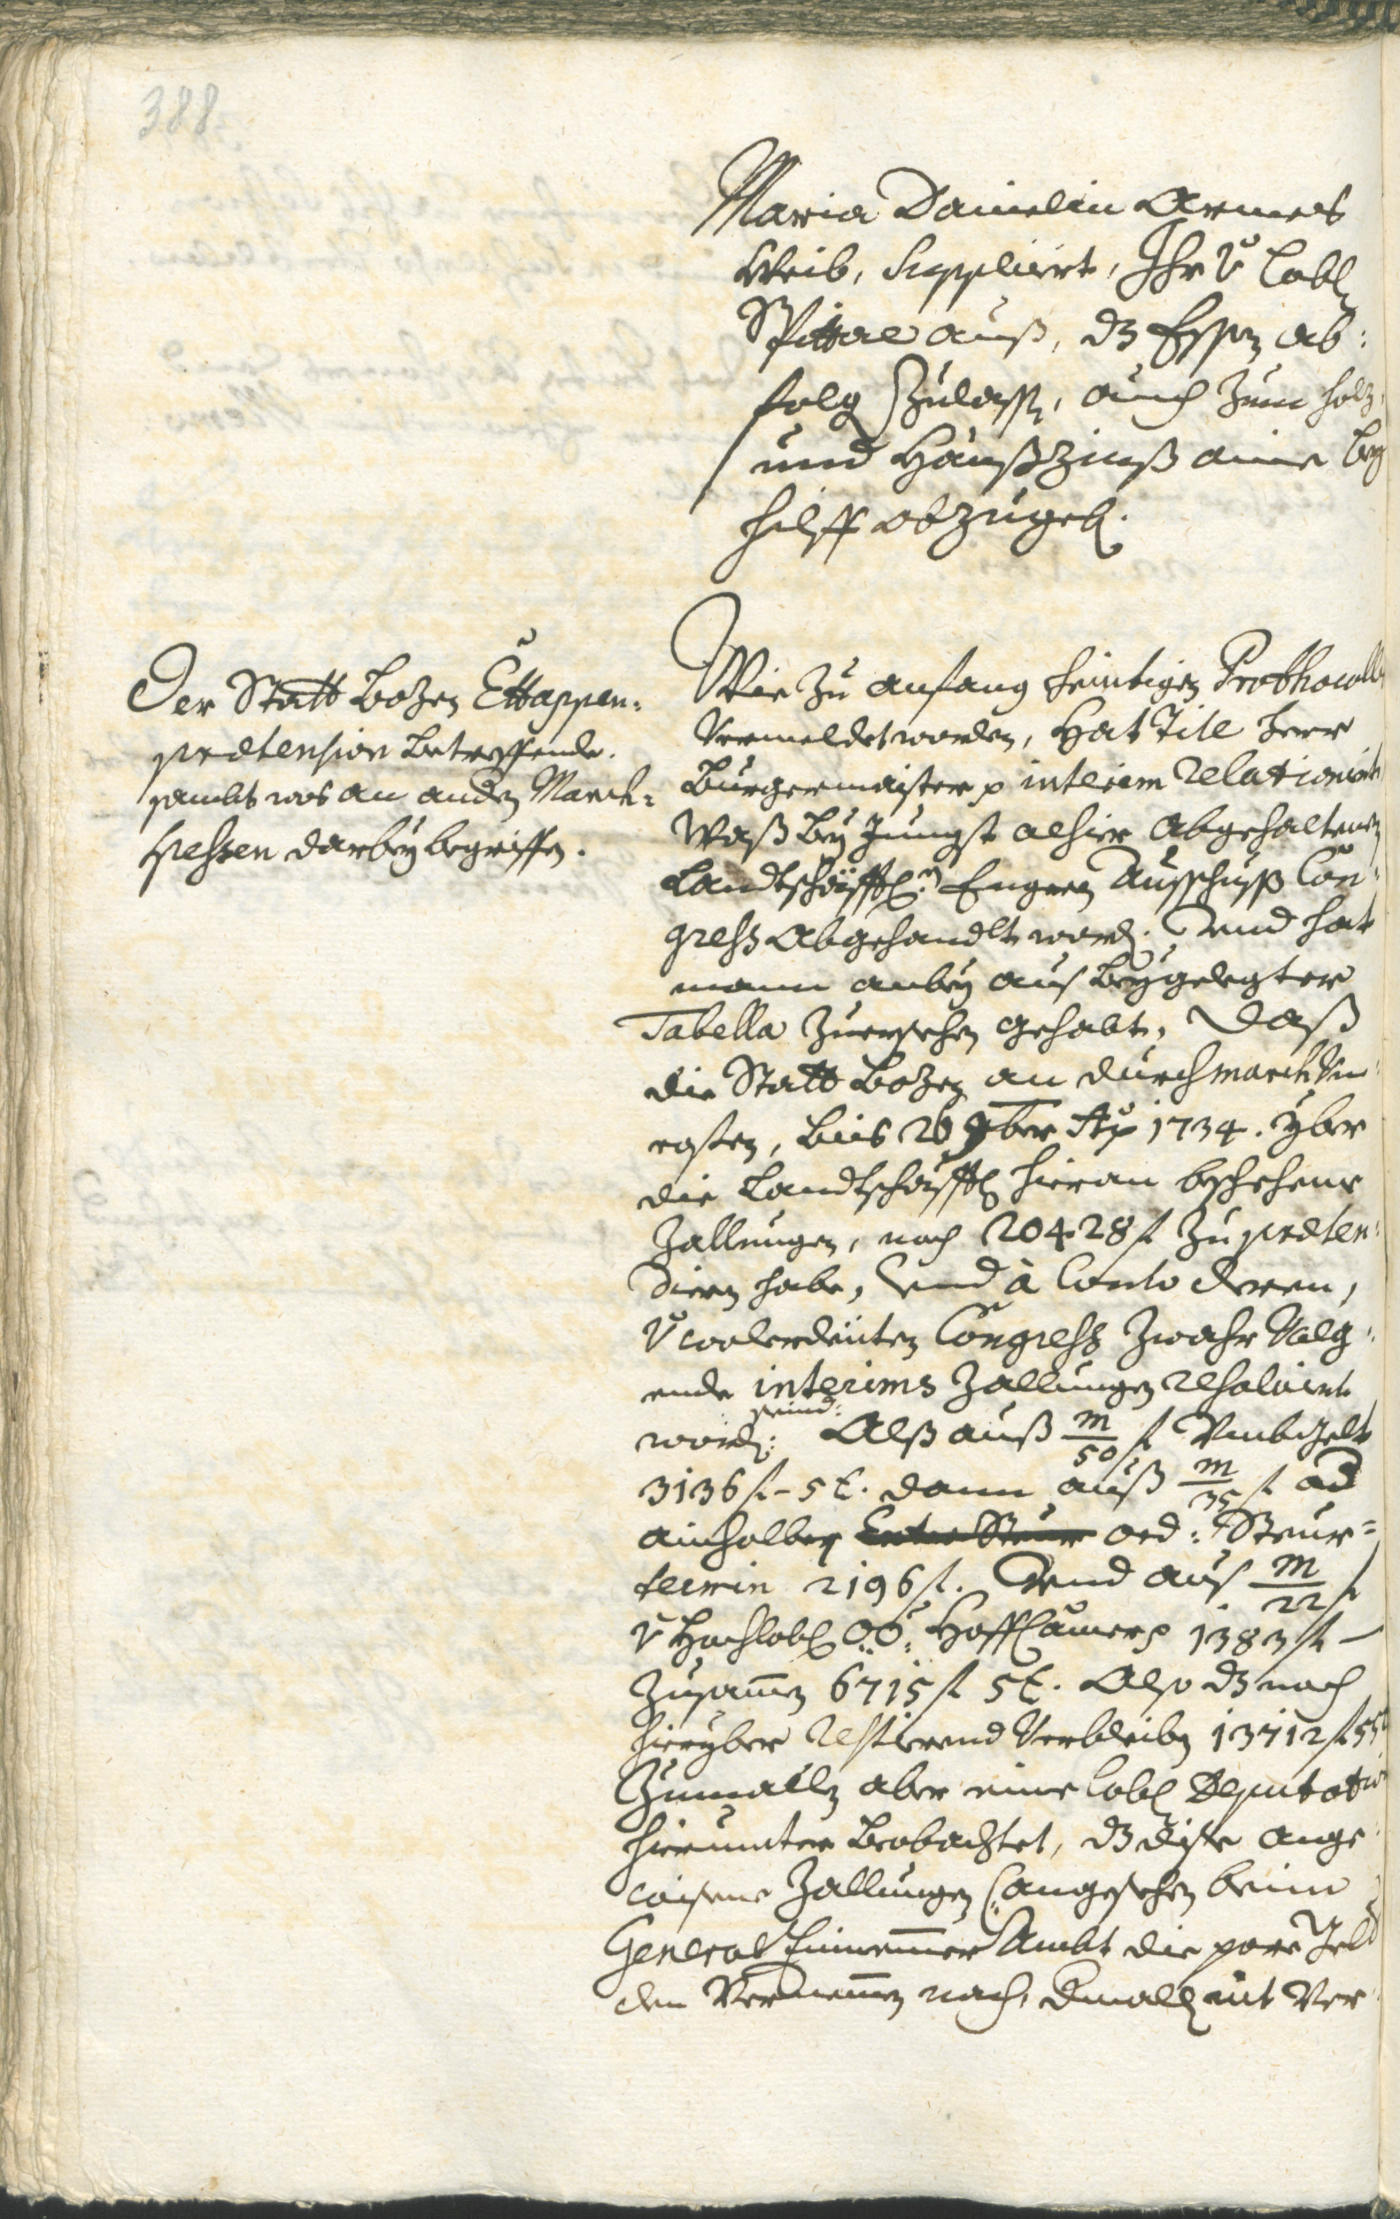 388
Maria Danielin Armes
Weib, Suppliciert, Ihr v Lobl
Spittal auß, dz Essen ab:
folg zulassen, auch zum holz,
und Haußzinß aine bey
hilff abzugeben.
Der Statt Bozen Ettappen-
prætension betreffende.
sambt was an anden March-
spesen darbey begriffen.
Wie zu anfang heintigen Prothocolls
Vermeldet worden, Hat Titl Herr
Burgermaister p interim relationiert
Waß bey Jungst alhier abgehaltenen
Landtschäfftl: Engern Ausschuß Con-
gress abgehandlt worden. Und hat
mann anbey aus beygelegter
Tabella zuersehen gehabt, Daß
die Statt Bozen an durchmarch Vn-
costen, bis 26 9ber Aõ 1734. yber
die Landtschäfftl hieran beschehene
Zallungen, noch 20428 f zu præten-
diern habe, Und à Conto deren,
v wolerdeuten Congress zwahr Volg-
ende interims Zallungen resolviert
worden seind: Alß auß m/50 f Umbgelt
3136 f - 5 x. dann auß m/35 f ad
ainhalben ord: Steur-
termin 2196 f. Und aus m/22 f
v Hochlobl OÖ: HoffCamer p 1383 f —
Zusamen 6715 f 5 x. Also dz noch
hieryber restierend Verbleiben 13712 f 55 x
Zumallen aber eine Lobl Deputation
hierunter beobachtet, dz dise ange-
wisene Zallungen (: angesehen beim
General Einnember Ambt die pare Geld
dem Vernemen nach, dermall nit Ver-